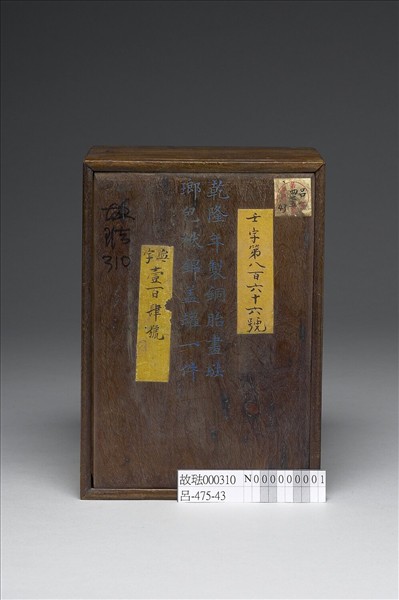 呂
43
乾隆年製銅胎畫琺
瑯包袱蓋罐一件
壬字第八百六十六號
字壹百肆號
故琺
310
故琺000310
呂-475-43
N000000001